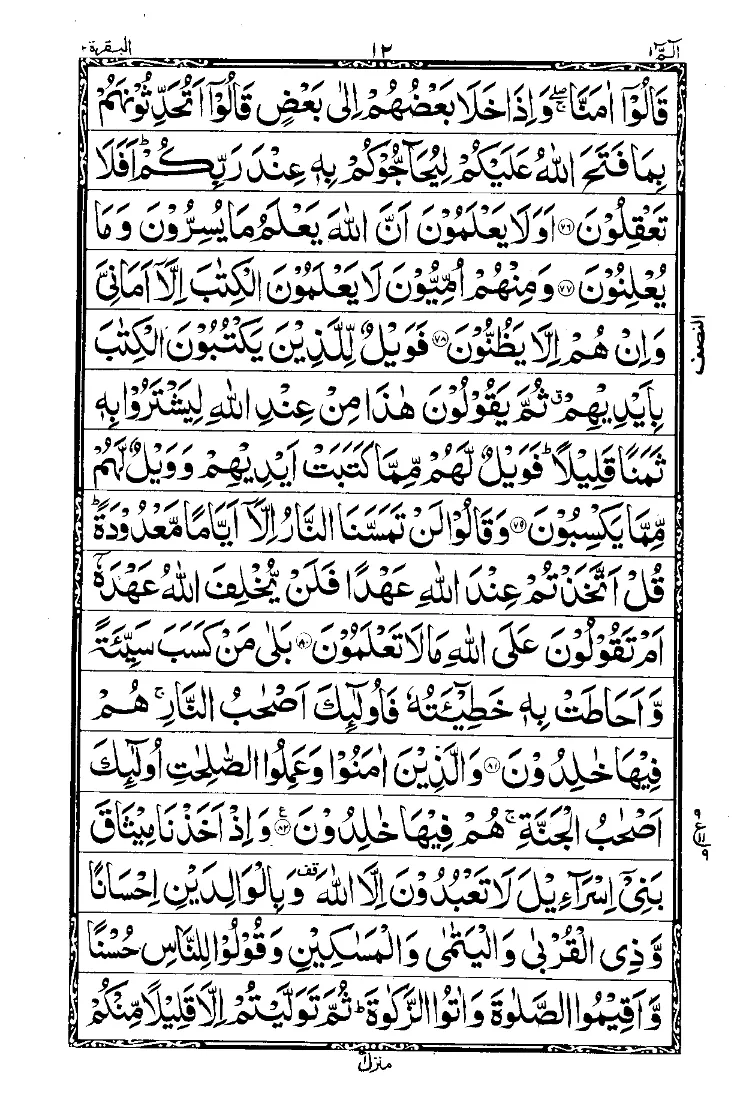 الٓمّٓ ١
١٢
البقرة ٢
قَالُوْۤا اٰمَنَّا ۖۚ وَاِذَا خَلَا بَعْضُهُمْ اِلٰى بَعْضٍ قَالُوْۤا اَتُحَدِّثُوْنَهُمْ
بِمَا فَتَحَ اللّٰهُ عَلَيْكُمْ لِيُحَآجُّوْكُمْ بِهٖ عِنْدَ رَبِّكُمْ ؕ اَفَلَا
تَعْقِلُوْنَ ﴿۷۶﴾ اَوَلَا يَعْلَمُوْنَ اَنَّ اللّٰهَ يَعْلَمُ مَا يُسِرُّوْنَ وَمَا
يُعْلِنُوْنَ ﴿۷۷﴾ وَمِنْهُمْ اُمِّيُّوْنَ لَا يَعْلَمُوْنَ الْكِتٰبَ اِلَّاۤ اَمَانِىَّ
وَاِنْ هُمْ اِلَّا يَظُنُّوْنَ ﴿۷۸﴾ فَوَيْلٌ لِّلَّذِيْنَ يَكْتُبُوْنَ الْكِتٰبَ
بِاَيْدِيْهِمْ ۗ ثُمَّ يَقُوْلُوْنَ هٰذَا مِنْ عِنْدِ اللّٰهِ لِيَشْتَرُوْا بِهٖ
ثَمَنًا قَلِيْلًا ؕ فَوَيْلٌ لَّهُمْ مِّمَّا كَتَبَتْ اَيْدِيْهِمْ وَوَيْلٌ لَّهُمْ
مِّمَّا يَكْسِبُوْنَ ﴿۷۹﴾ وَقَالُوْا لَنْ تَمَسَّنَا النَّارُ اِلَّاۤ اَيَّامًا مَّعْدُوْدَةً ؕ
قُلْ اَتَّخَذْتُمْ عِنْدَ اللّٰهِ عَهْدًا فَلَنْ يُّخْلِفَ اللّٰهُ عَهْدَهٗۤ
اَمْ تَقُوْلُوْنَ عَلَى اللّٰهِ مَا لَا تَعْلَمُوْنَ ﴿۸۰﴾ بَلٰى مَنْ كَسَبَ سَيِّئَةً
وَّاَحَاطَتْ بِهٖ خَطِيْٓئَتُهٗ فَاُولٰٓئِكَ اَصْحٰبُ النَّارِ ۚ هُمْ
فِيْهَا خٰلِدُوْنَ ﴿۸۱﴾ وَالَّذِيْنَ اٰمَنُوْا وَعَمِلُوا الصّٰلِحٰتِ اُولٰٓئِكَ
اَصْحٰبُ الْجَنَّةِ ۚ هُمْ فِيْهَا خٰلِدُوْنَ ﴿۸۲﴾ ع وَاِذْ اَخَذْنَا مِيْثَاقَ
بَنِىْٓ اِسْرَآءِيْلَ لَا تَعْبُدُوْنَ اِلَّا اللّٰهَ قف وَبِالْوَالِدَيْنِ اِحْسَانًا
وَّذِى الْقُرْبٰى وَالْيَتٰمٰى وَالْمَسٰكِيْنِ وَقُوْلُوْا لِلنَّاسِ حُسْنًا
وَّاَقِيْمُوا الصَّلٰوةَ وَاٰتُوا الزَّكٰوةَ ؕ ثُمَّ تَوَلَّيْتُمْ اِلَّا قَلِيْلًا مِّنْكُمْ
النصف
۹
ع
۱۱
۹
منزل ١